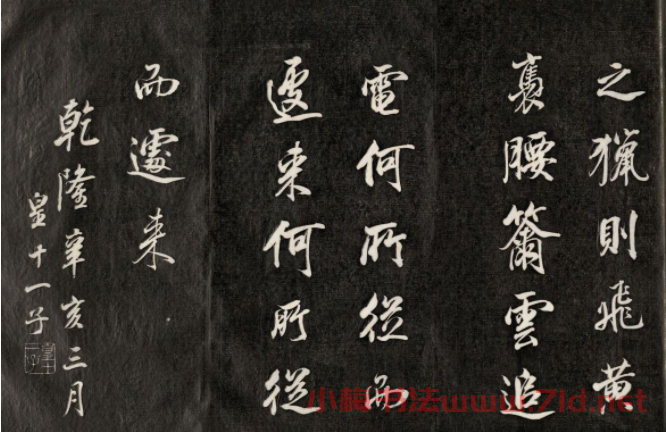 之獵則飛黃
褭腰籋雲追
電何所從而
遽来何所從
而遽来
乾隆辛亥三月
皇十一子
小梅书法www.7ld.net